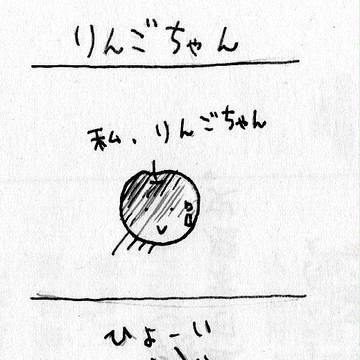 りんごちゃん
私、りんごちゃん
ひょーい